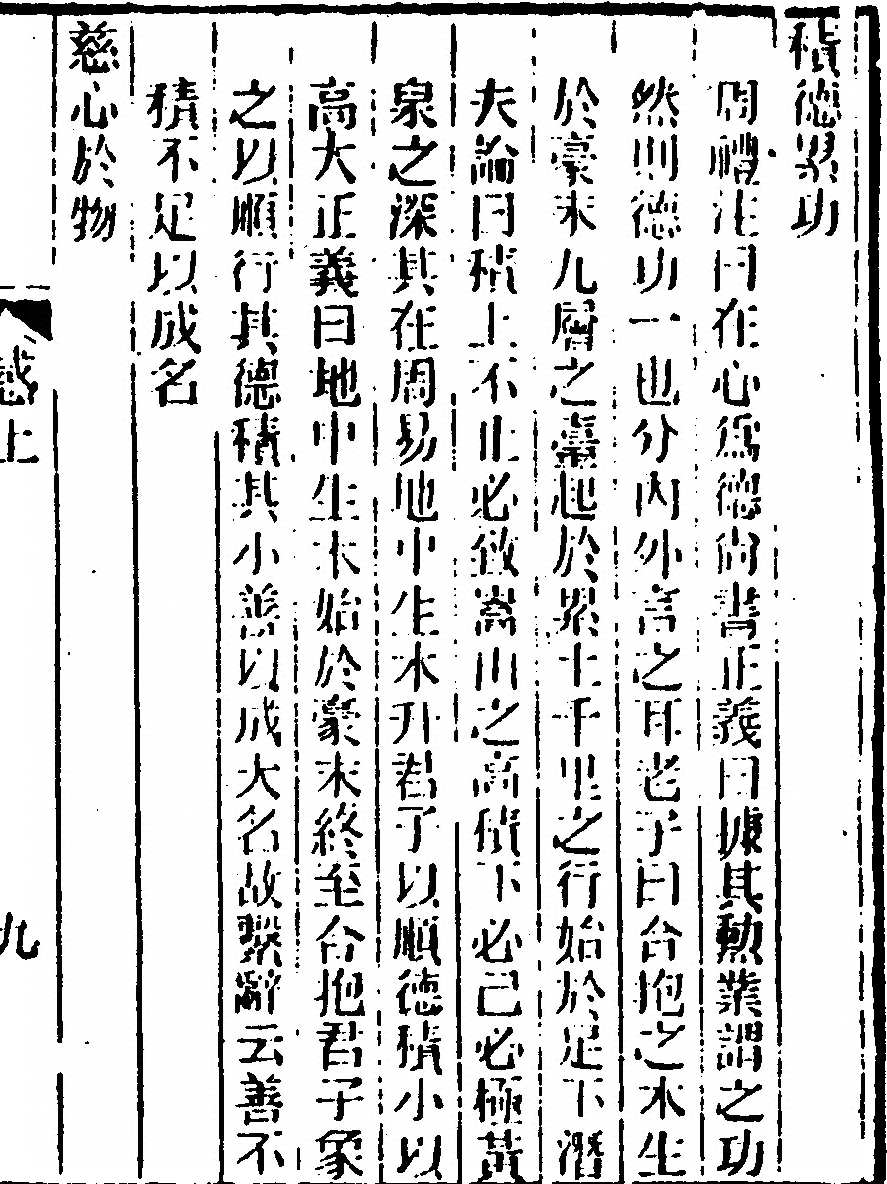 積德累功
周禮注曰在心爲德尚書正義曰據其勲業謂之功
然則德功一也分內外言之耳老子曰合抱之木生
於豪末九層之臺起於累土千里之行始於足下潛
夫論曰積上不止必致嵩山之高積下不必已必極黃
泉之深其在周易地中生木升君子以順德積小以
高大正義曰地中生木始於豪末終至合抱君子象
之以順行其德積其小善以成大名故繫辭云善不
積不足以成名
慈心於物
感上
九